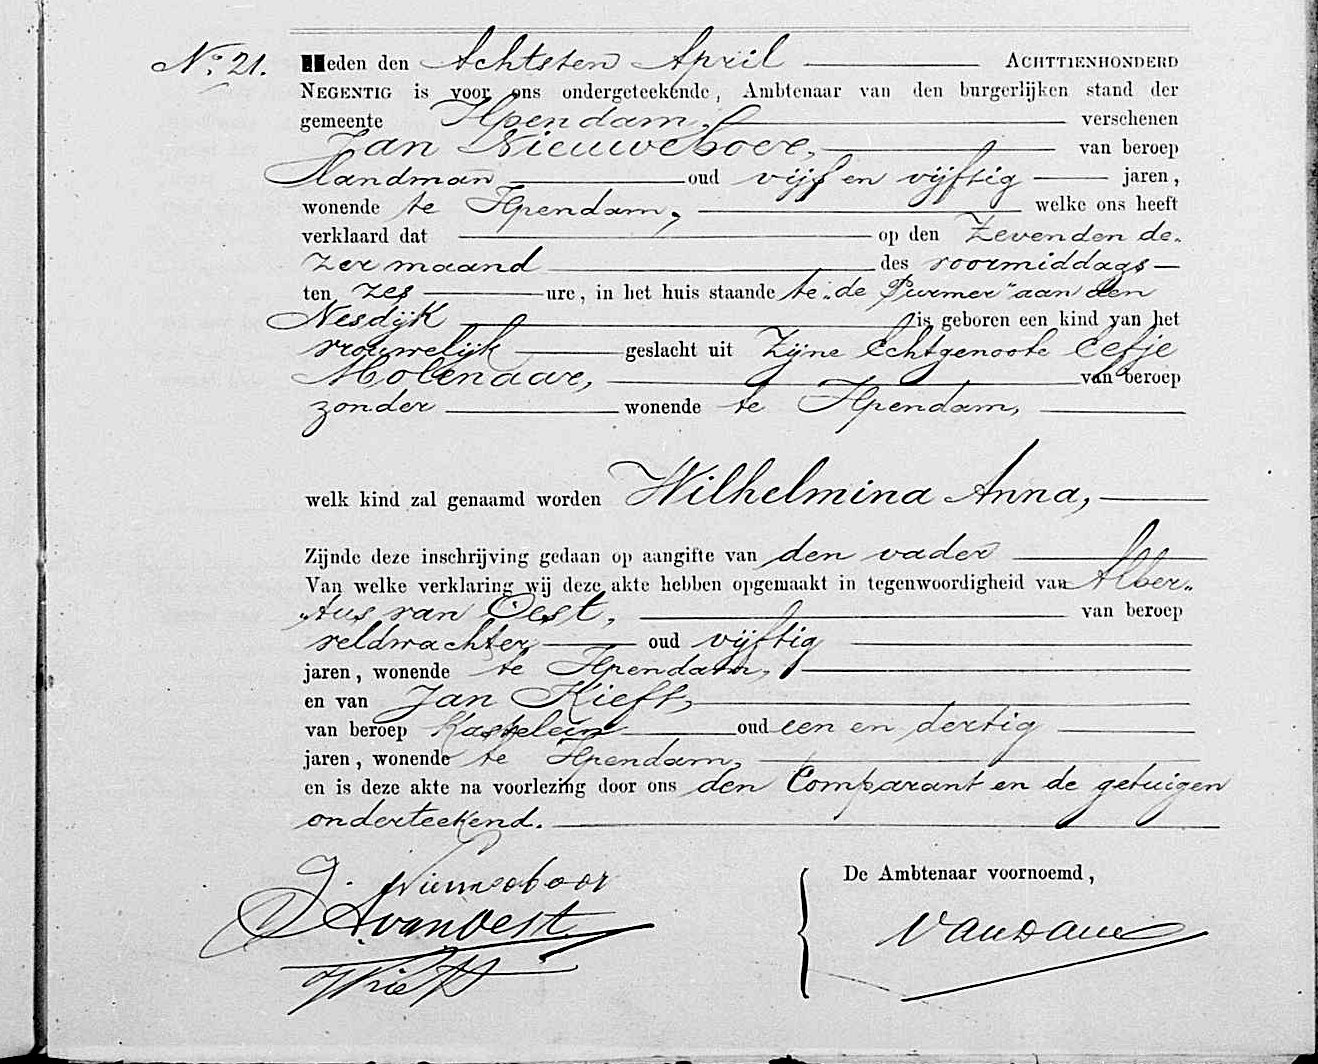 No. 21. Heden den Achtsten April ACHTTIENHONDERD
NEGENTIG is voor ons ondergeteekende, Ambtenaar van den burgerlijken stand der
gemeente Ilpendam, verschenen
Jan Nieuweboer, van beroep
Landman oud vijf en vijftig jaren,
wonende te Ilpendam, welke ons heeft
verklaard dat op den Zevenden de-
zer maand des voormiddags
ten zes ure, in het huis staande te „de Purmer” aan den
Nesdijk is geboren een kind van het
vrouwelijk geslacht uit Zijne Echtgenoote Eefje
Molenaar, van beroep
zonder wonende te Ilpendam,
welk kind zal genaamd worden Wilhelmina Anna,
Zijnde deze inschrijving gedaan op aangifte van den vader
Van welke verklaring wij deze akte hebben opgemaakt in tegenwoordigheid van Alber„
„tus van Oest, van beroep
veldwachter oud vijftig
jaren, wonende te Ilpendam,
en van Jan Kieft,
van beroep Kastelein oud een en dertig
jaren, wonende te Ilpendam,
en is deze akte na voorlezing door ons den Comparant en de getuigen
onderteekend.
J. Nieuweboer De Ambtenaar voornoemd,
A van Oest Van Dam
J Kieft